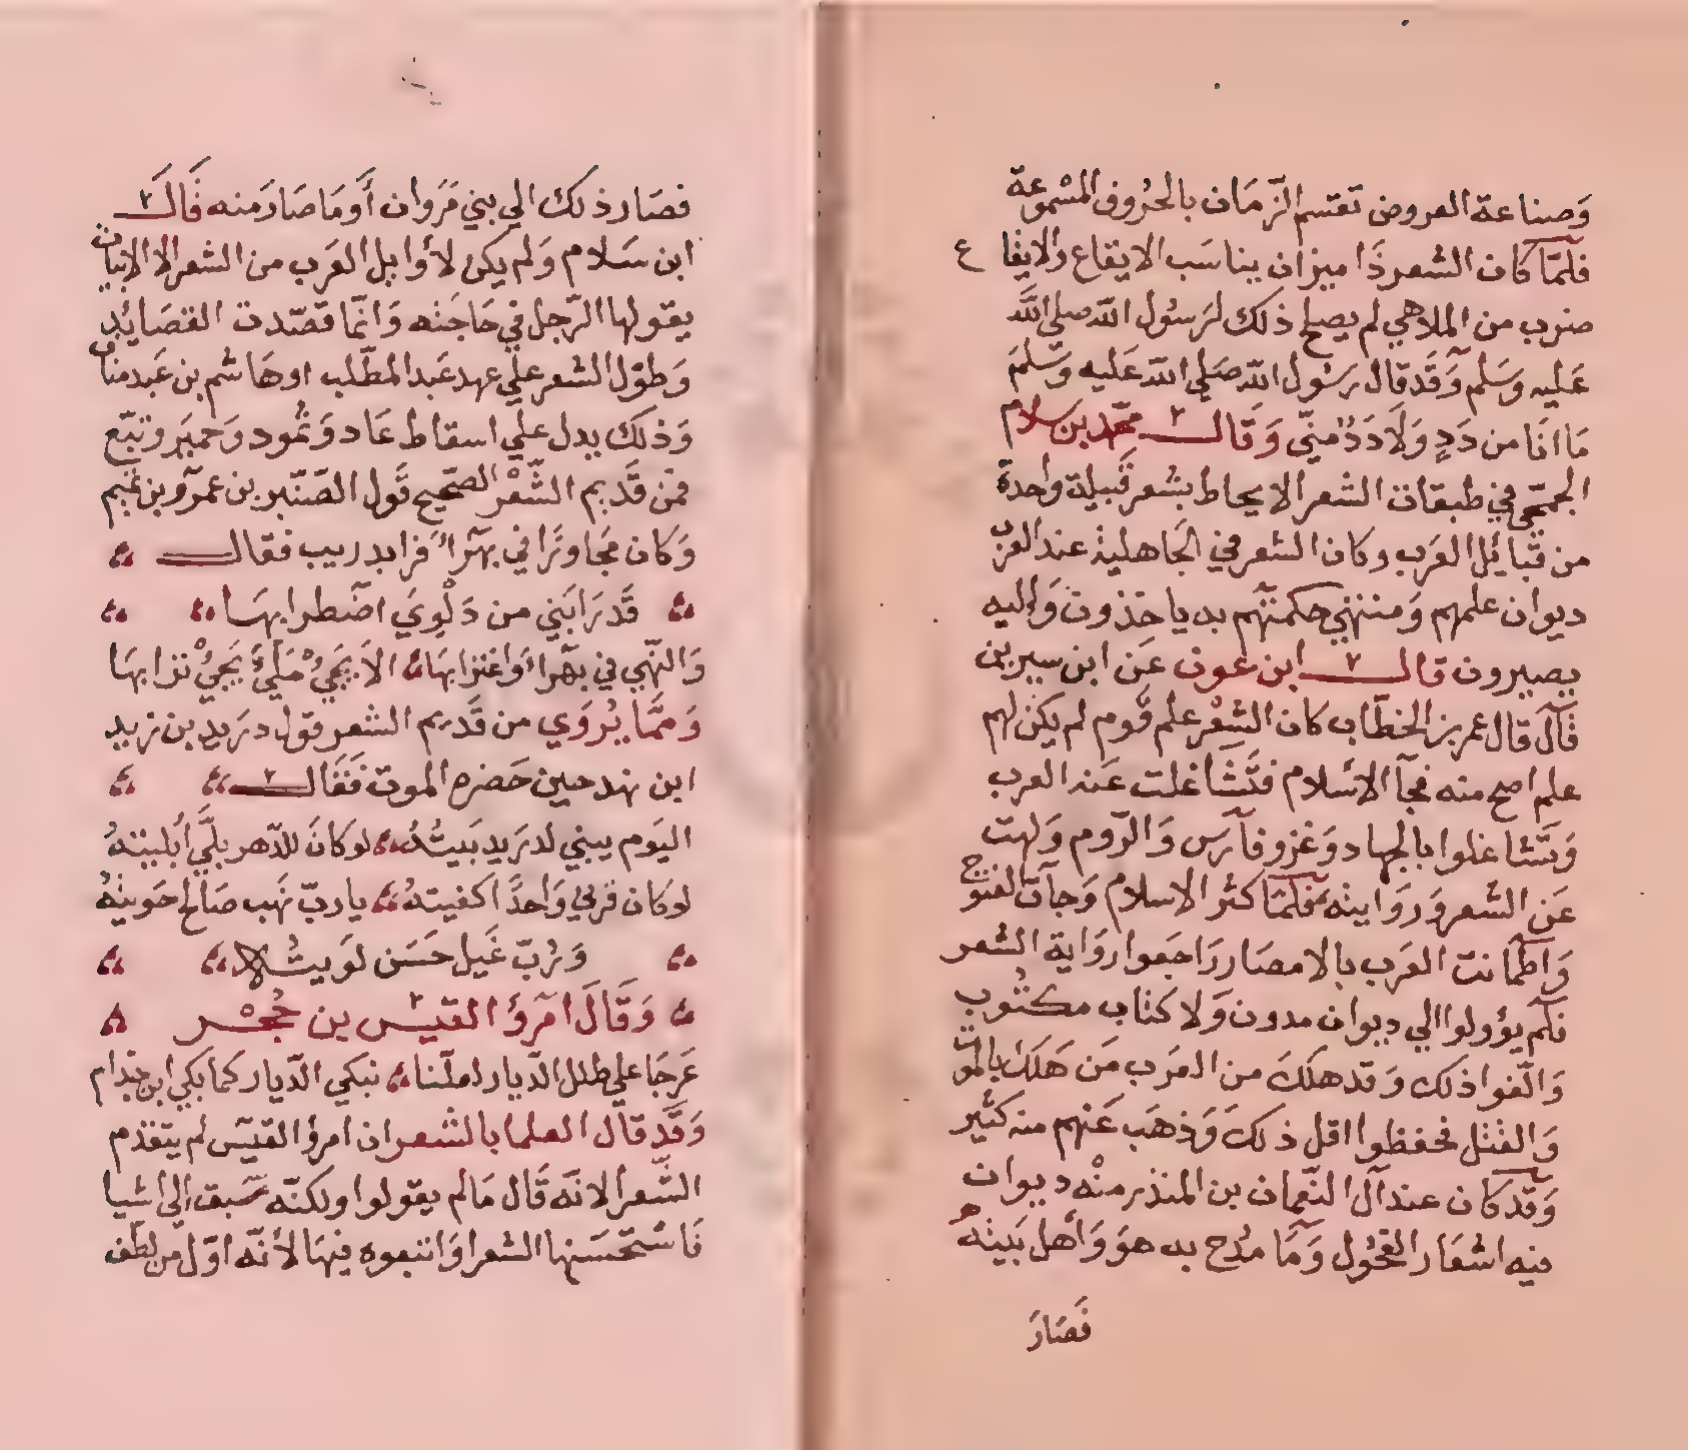 وَصناعة العروض تقتسم الزّمَان بالحُروف المسْموعة
فلمّا كان الشعر ذَا ميزان يناسَب الايقاع والايقاع
ضرب من الملاهي لم يصلح ذلك لرَسُول اللّه صلى اللّه
عَليه وسَلم وَقَد قال رسُول اللّه صَلى اللّه عَليه وسَلمَ
مَا انَا من دَدٍ وَلَا دَدٌ منّي وَقَالـــ محمّد بن سلام
الجمَحي في طبقات الشعر الا يحاط بشعر قَبيلة واحدة
من قبائل العَرب وكان الشعر في الجَاهلية عند العرب
ديوان علمهم وَمنتهي حكمتهم به ياخذون وَإليه
يصيرون قالـــ ابن عَون عَن ابن سيرين
قَالَ قال عمر بن الخطّاب كان الشعْر علم قَوم لم يكن لهم
علم اصح منه فجآ الاسْلام فتَشَاغلت عَنه العرب
وَتَشاغلوا بالجهاد وَغزو فآرس وَالرّوم وَلهت
عَن الشعر وَروَايته فلمّا كثر الاسلام وَجآت الفتوح
وَاطمَانت العَرب بالامصار رَاجَعوا روَاية الشعر
فلم يؤولوا الي ديوان مدون وَلا كتاب مكتُوب
وَالّفوا ذلك وَقد هلكَ من العَرب مَن هَلك بالموت
وَالقتل فحفظوا اقل ذلكَ وَذهَب عَنهم منه كثير
وَقد كان عند آل النّعمان بن المنذر منْه ديوان
فيه اشعَار الفحُول وَمَا مُدح به هوَ وَأهل بَيته
فَصَارَ
فصَار ذلك الي بني مَرَوان أَو مَا صَارَ منه قَالَـــ
ابن سَلام وَلم يكن لأوايل العَرب من الشعر الا الابيات
يقولها الرّجل في حَاجَته وَانّما قصّدت القصَائد
وَطوّل الشعر علي عهد عَبد المطّلب اوهَاشم بن عَبد مناف
وَذلك يدل علي اسقاط عَاد وَثمُود وَحميَر وتبّع
فمن قَديم الشّعْر الصّحيح قَول العَنبر بن عمرو بن تميم
وَكان مجَاورًا في بهرَاءَ فرابه ريب فقالـــ
قَد رَابَني من دَلْوِيَ اضْطرابهَا
وَالنّهي في بهرَاءَ وَاغترابهَا الاَ تجئْ مَلأَى يَجئْ قرابهَا
وَممَّا يُروَي من قَديم الشعر قول دريد بن زيد
ابن نهد حين حَضره الموت فَقَالـــ
اليَوم يبني لدرَيد بَيتُهُ لو كَانَ للدّهر بلَي أبليتهُ
لو كان قرني وَاحدًا كفيتهُ يا ربّ نهَب صَالح حَويتهُ
وَرُبّ غَيل حَسَن لوَيتُـه
وَقَالَ امرؤ القيس بن حُجْـر
عَرجَا علي طلل الدّيار لعلّنا نبكي الدّيار كمَا بكي ابن خذام
وَقَد قال العلما بالشعر ان امرؤ القيس لم يتقدم
الشّعرا لانّه قَال مَا لم يقولوا ولكنّه سَبق الي اشيا
فَاستحَسَنها الشعرا وَاتبعوه فيهَا لأنّه اوّل من لطف